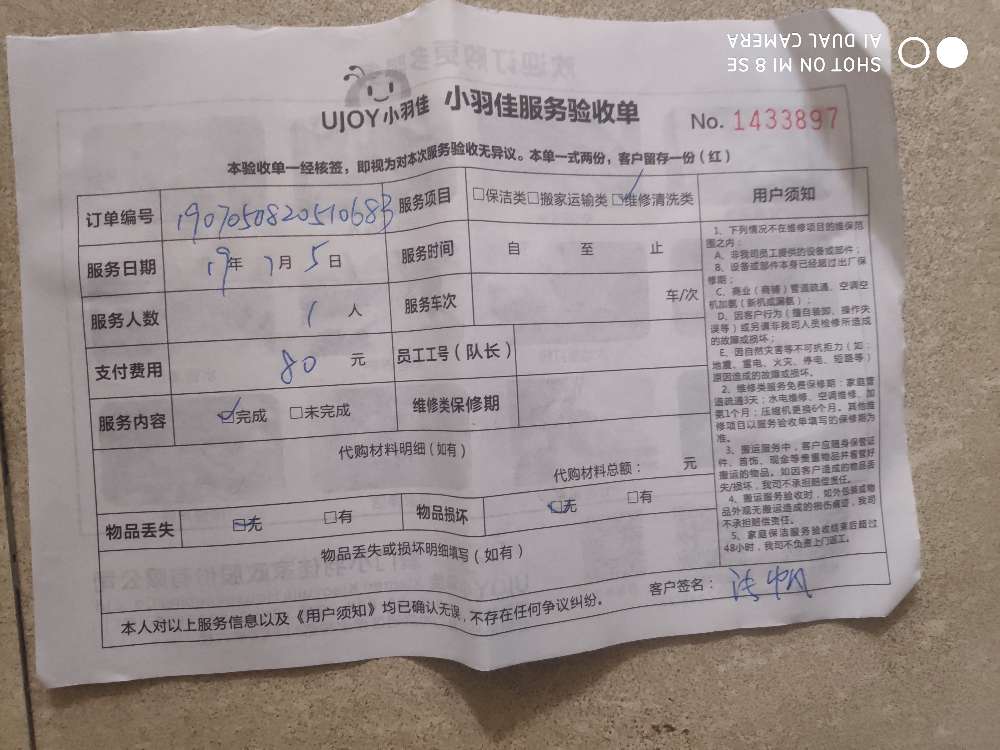 SHOT ON MI 8 SE
AI DUAL CAMERA
UJOY小羽佳 小羽佳服务验收单
No. 1433897
本验收单一经核签，即视为对本次服务验收无异议。本单一式两份，客户留存一份（红）
订单编号 190705082051068
服务项目 □保洁类□搬家运输类☑维修清洗类
服务日期 19年 7月 5日
服务时间 自 至 止
服务人数 1 人
服务车次 车/次
支付费用 80 元
员工工号（队长）
服务内容 ☑完成 □未完成
维修类保修期
代购材料明细（如有）
代购材料总额： 元
物品丢失 ☑无 □有
物品损坏 ☑无 □有
物品丢失或损坏明细填写（如有）
客户签名：
本人对以上服务信息以及《用户须知》均已确认无误，不存在任何争议纠纷。
用户须知
1、下列情况不在维修项目的维保范
围之内：
A、非我司员工提供的设备或部件；
B、设备或部件本身已经超过出厂保
修期；
C、商业（商铺）管道疏通、空调空
机加氨（新机或漏氨）；
D、因客户行为（擅自装卸、操作失
误等）或另请非我司人员检修所造成
的故障或损坏；
E、因自然灾害等不可抗拒力（如：
地震、雷电、火灾、停电、短路等）
原因造成的故障或损坏。
2、维修类服务免费保修期：家庭管
道疏通3天；水电维修、空调维修、加
氨1个月；压缩机更换6个月。其他维
修项目以服务验收单填写的保修期为
准。
3、搬运服务中，客户应随身保管证
件、首饰、现金等贵重物品并看管好
搬运的物品。如因客户造成的物品丢
失/损坏，我司不承担赔偿责任。
4、搬运服务验收时，如外包装或物
品外观无搬运造成的损伤痕迹，我司
不承担赔偿责任。
5、家庭保洁服务验收结束后超过
48小时，我司不负责上门返工。